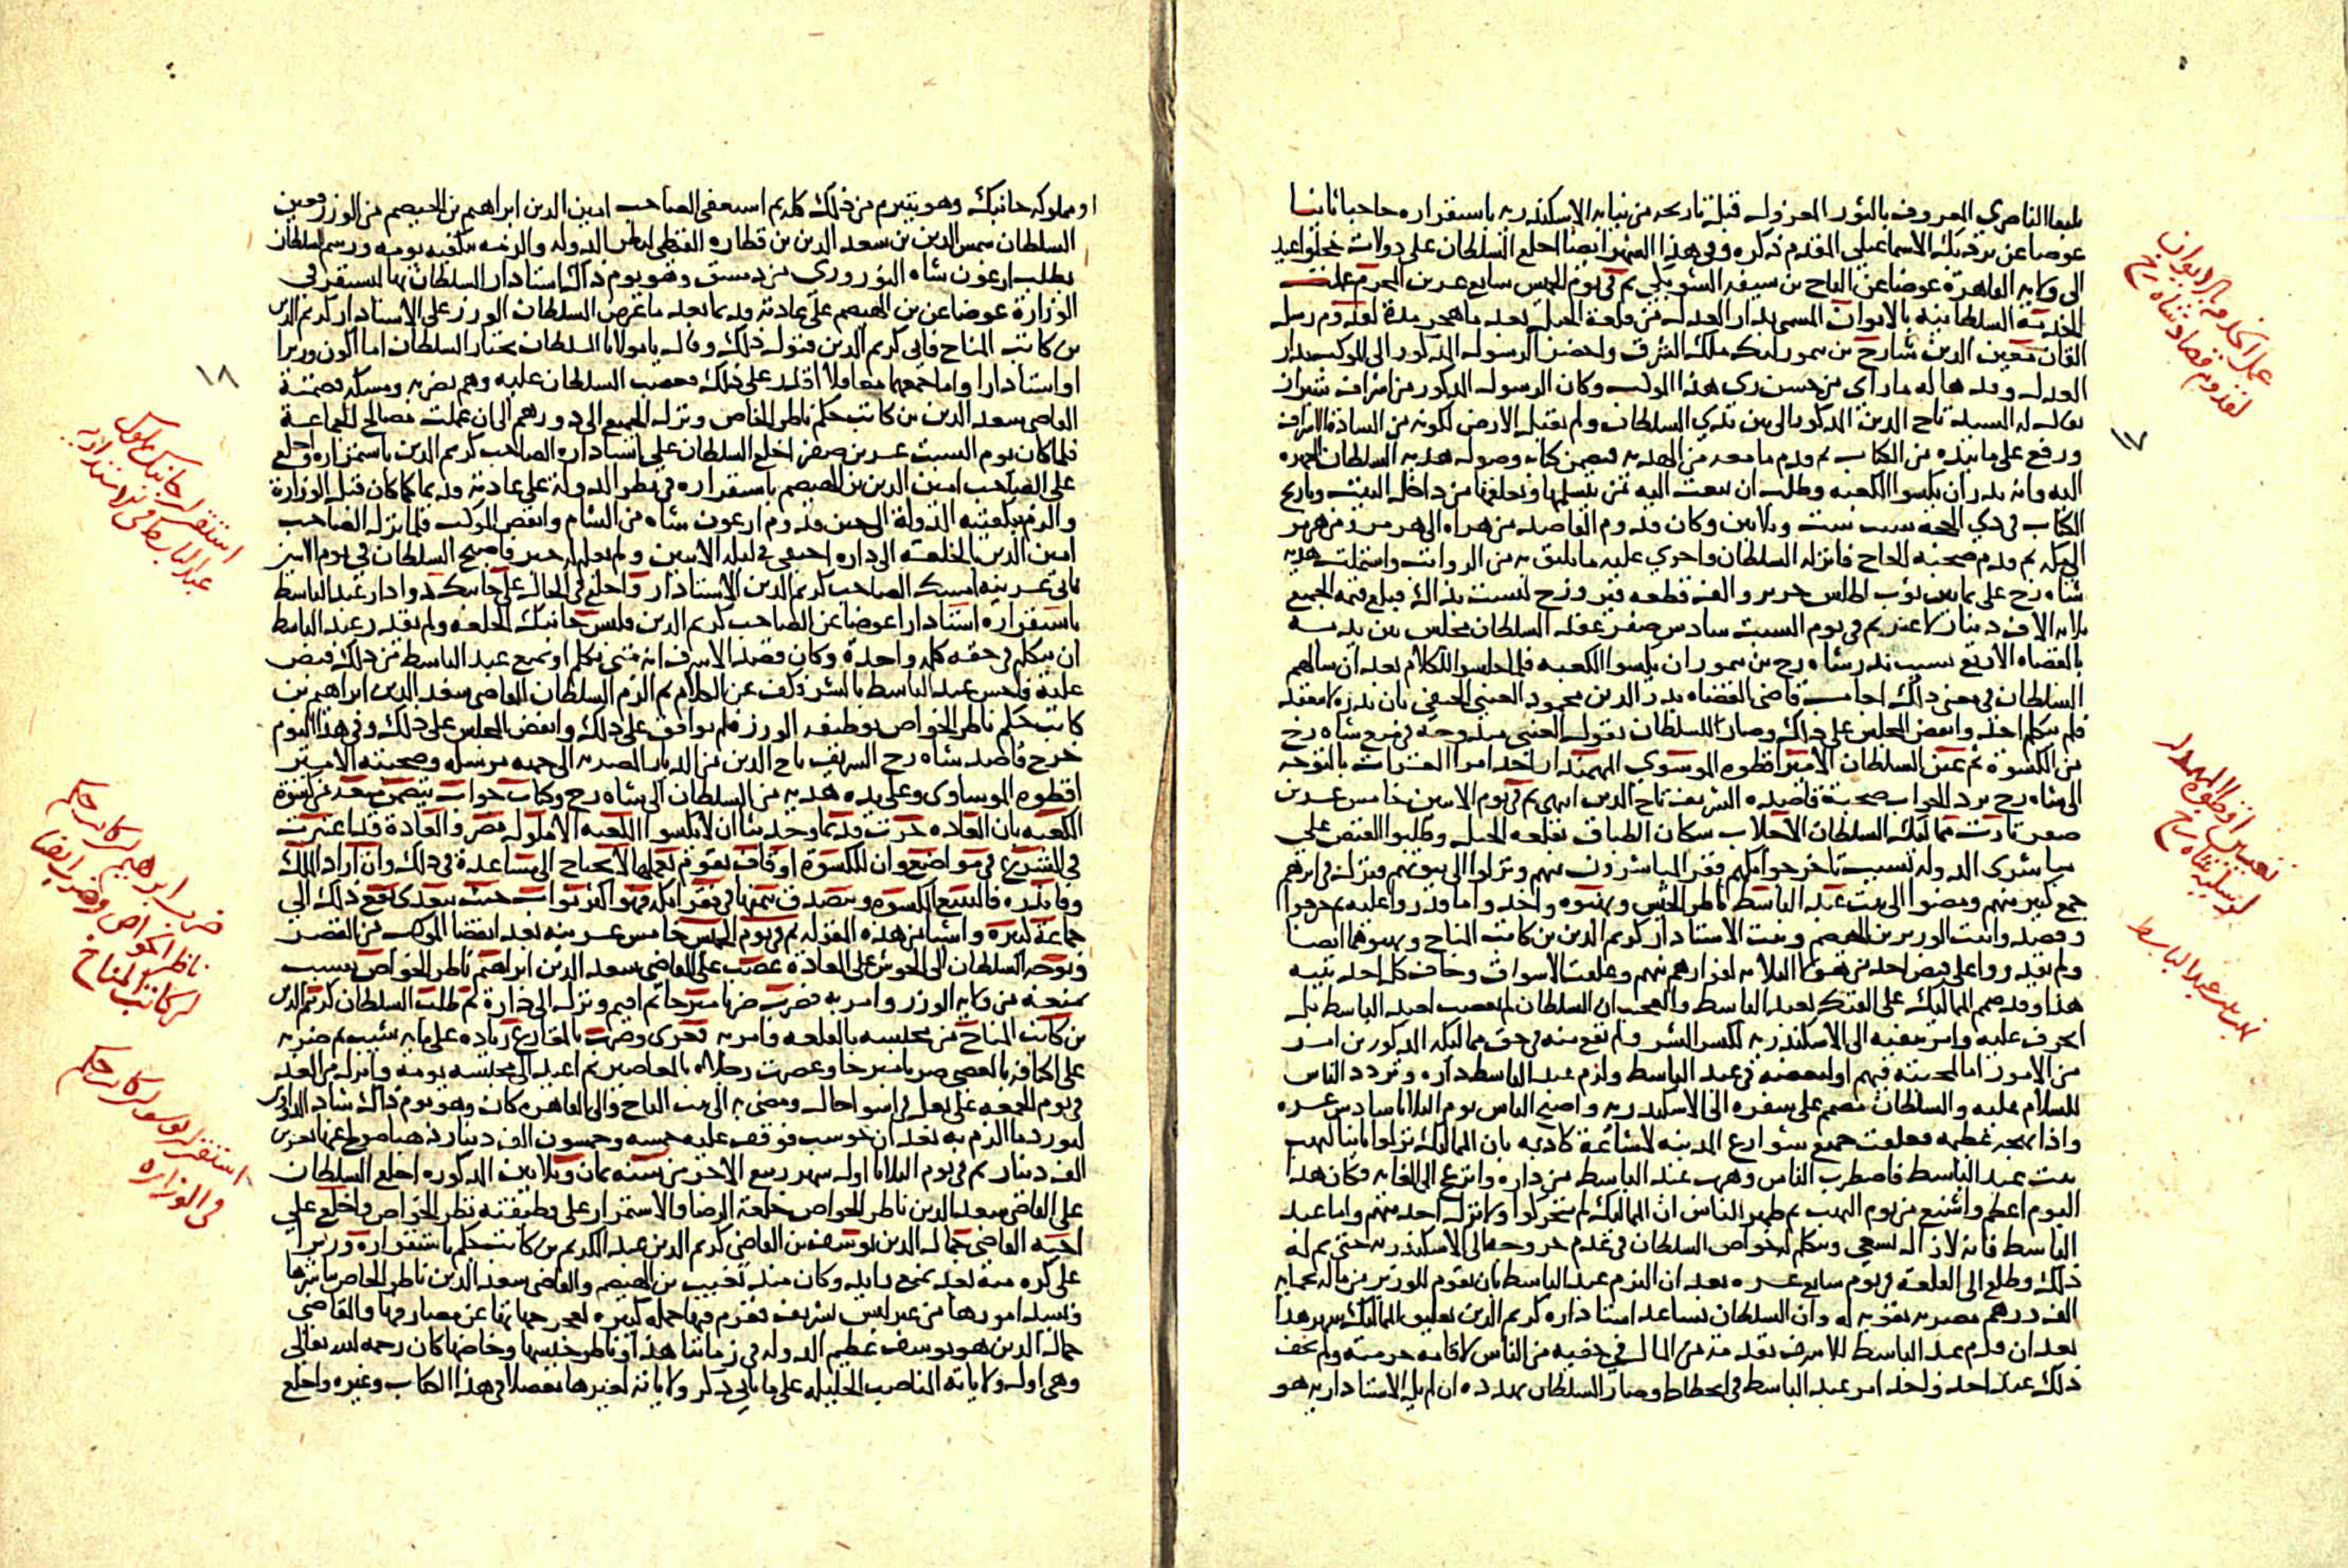 يلبغا الناصري المعروف بالثور المعزول قبل تاريخه من نيابة الاسكندرية باستقراره حاجبا ثانيا
عوضا عن بردبك الاسماعيلي المقدم ذكره وفي هذا الشهر ايضا اخلع السلطان على دولات خجا واعيد
الى ولاية القاهرة عوضا عن التاج بن سيفه الشوبكي ثم في يوم الخميس سابع عشرين المحرم عملت
الخدمة السلطانية بالايوان المسمى بدار العدل من قلعة الجبل بعد ما هجر مدة لقدوم رسل
القان معين الدين شارخ بن تيمورلنك ملك الشرق واحضر الرسول المذكور الى الموكب بدار
العدل وقد هاله ما راى من حسن زي هذا الموكب وكان الرسول المذكور من اشراف شيراز
يقال له السيد تاج الدين المذكور الى بين يدي السلطان ولم يقبل الارض لكونه من السادة الاشراف
ورفع على ما بيده من الكتاب ثم قدم ما معه من الهدية فتضمن كتابه وصوله هدية السلطان المجهزه
اليه وانه نذر ان يكسوا الكعبه وطلب ان يبعث اليه من يتسلمها ويعلقها من داخل البيت وتاريخ
الكتاب في ذي الحجة سنة ست وثلاثين وكان قدوم القاصد من هراه الى هرمز ومن هرمز
الى مكة ثم قدم صحبة الحاج فانزله السلطان واجرى عليه ما يليق به من الرواتب واشتملت هدية
شاه رخ على ثمانين ثوب اطلس حرير والف قطعه فيروزج ليست بذاك فبلغ قيمة الجميع
ثلاثة الاف دينار لا غير ثم في يوم السبت سادس صفر عقد السلطان مجلس بين يديه
بالقضاه الاربع بسبب نذر شاه رخ بن تيمور ان يكسوا الكعبه فلما جلسوا للكلام بعد ان سالهم
السلطان في معنى ذلك اجاب قاضي القضاه بدر الدين محمود العيني الحنفي بان نذره لا ينعقد
فلم يتكلم احد وانفض المجلس على ذلك وصار للسلطان بقول العيني مندوحه في منع شاه رخ
من الكسوة ثم عين السلطان الامير اقطوه الموسوي المهمندار احد امرا العشرات بالتوجه
الى شاه رخ برد الجواب صحبة قاصده الشريف تاج الدين انتهى ثم في يوم الاثنين خامس عشرين
صفر ثارت مماليك السلطان الاجلاب سكان الطباق بقلعه الجبل وطلبوا القبض على
مباشري الدولة بسبب تاخر جوامكهم ففر المباشرون منهم ونزلوا الى بيوتهم فنزل في اثرهم
جمع كبير منهم ومضوا الى بيت عبد الباسط ناظر الجيش ونهبوه واخذوا ما قدروا عليه ثم خرجوا
وقصدوا بيت الوزير بن الهيصم وبيت الاستادار كريم الدين بن كاتب المناخ ونهبوهما ايضا
ولم يقدروا على قبض احد من هولا الثلاثه لفرارهم منهم وغلقت الاسواق وخاف كل احد على بيته
هذا وقد صمم المماليك على الفتك بعبد الباسط والعجب ان السلطان لم يغضب لعبد الباسط بل
انحرف عليه وامر بنفيه الى الاسكندرية لكسر الشر ولم يقع منه في حق مماليكه المذكورين امر
من الامور اما لمحبته فيهم او لبغضه في عبد الباسط ولزم عبد الباسط داره وتردد الناس
للسلام عليه والسلطان مصمم على سفره الى الاسكندرية واصبح الناس يوم الثلاثا سادس عشره
واذا بهجه عظيمه فغلقت جميع شوارع المدينه لاشاعة كاذبه بان المماليك نزلوا ثانيا لنهب
بيت عبد الباسط فاضطرب الناس وهرب عبد الباسط من داره وانزعج الى الغاية فكان هذا
اليوم اعظم واشنع من يوم النهب ثم ظهر للناس ان المماليك لم يتحركوا ولا نزل احد منهم واما عبد
الباسط فانه لازال يسعى ويتكلم له خواص السلطان في عدم خروجه الى الاسكندرية حتى تم له
ذلك وطلع الى القلعة في يوم سابع عشره بعد ان التزم عبد الباسط بان يقوم للوزير من ماله بخمسمايه
الف درهم مصريه تقوية له وان السلطان يساعد استاداره كريم الدين بعليق المماليك شهر هذا
بعد ان قدم عبد الباسط للاشرف تقدمه من المال في خفيه من الناس لاقامه حرمته ولم يخف
ذلك عند احد واخذ امر عبد الباسط في انحطاط وصار السلطان يهدده ان لم يل الاستاداريه هو
عمل الخدمة بالايوان
لقدوم قصاد شاه رخ
١٧
تعيين اقطوه المهمندار
لرسليه شاه رخ
نهب بيت عبد الباسط
او مملوكه جانبك وهو يتبرم من ذلك كله ثم استعفى الصاحب امين الدين ابراهيم بن الهيصم من الوزر فعين
السلطان شمس الدين بن سعد الدين بن قطاره القبطي لنظر الدولة والزمه بتكفيه يومه ورسم السلطان
بطلب ارغون شاه النوروزي من دمشق وهو يوم ذاك استادار السلطان بها ليستقر في
الوزارة عوضا عن بن الهيصم على عادته قديما بعد ما عرض السلطان الوزر على الاستادار كريم الدين
بن كاتب المناخ فابى كريم الدين قبول ذلك وقال يا مولانا السلطان يختار السلطان اما اكون وزيرا
او استادارا واما جمعهما معا فلا اقدر على ذلك فغضب السلطان عليه وهم بضربه ومسكه فضمنه
القاضي سعد الدين بن كاتب جكم ناظر الخاص ونزل الجميع الى دورهم الى ان عملت مصالح الجماعة
فلما كان يوم السبت عشرين صفر اخلع السلطان على استاداره الصاحب كريم الدين باستمراره واخلع
على الصاحب امين الدين بن الهيصم باستقراره في نظر الدولة على عادته قديما كما كان قبل الوزارة
والزم بتكفية الدولة الى حين قدوم ارغون شاه من الشام وانفض الموكب فلما نزل الصاحب
امين الدين بالخلعه الى داره اختفى في ليلة الاثنين ولم يعلم له خبر فاصبح السلطان في يوم الاثنين
ثاني عشرينه امسك الصاحب كريم الدين الاستادار واخلع في الحال على جانبك دوادار عبد الباسط
باستقراره استادارا عوضا عن الصاحب كريم الدين فلبس جانبك الخلعه ولم يقدر عبد الباسط
ان يتكلم في حقه كلمه واحدة وكان قصد الاشرف انه متى تكلم او تمنع عبد الباسط من ذلك قبض
عليه فاحس عبد الباسط بالشر فكف عن الكلام ثم الزم السلطان القاضي سعد الدين ابراهيم بن
كاتب جكم ناظر الخواص بوظيفه الوزر فلم يوافق على ذلك وانفض المجلس على ذلك وفي هذا اليوم
خرج قاصد شاه رخ الشريف تاج الدين من الديار المصرية الى جهه مرسله وصحبته الامير
اقطوه الموساوي وعلى يده هدية من السلطان الى شاه رخ وكتاب جواب يتضمن منعه من كسوة
الكعبه بان العاده جرت قديما وحديثا ان لا يكسوا الكعبه الا ملوك مصر والعادة قد اعتبرت
في الشرع في مواضع وان للكسوة اوقاف تقوم بعملها لا يحتاج الى مساعدة في ذلك وان اراد الملك
وفا نذره فليبع الكسوه ويتصدق بثمنها في فقرا مكه فهو اكثر ثوابا حيث يتعدى نفع ذلك الى
جماعة كثيرة واشيا من هذه المقوله ثم في يوم الخميس خامس عشرينه بعد انقضا الموكب من القصر
وتوجه السلطان الى الحوش على العادة غضب على القاضي سعد الدين ابراهيم ناظر الخواص بسبب
تمنعه من ولاية الوزر وامر به فضرب ضربا مبرحا ثم اقيم ونزل الى داره ثم طلب السلطان كريم الدين
بن كاتب المناخ من محبسه بالقلعه وامر به فعرى وضرب بالمقارع زياده على مايه شيب ثم ضربه
على اكتافه بالعصي ضربا مبرحا وعصرت رجلاه بالمعاصير ثم اعيد الى محبسه يومه وانزل من الغد
في يوم الجمعه على بغل في اسوا حال ومضي به الى بيت التاج والى القاهره كان وهو يوم ذاك شاد الدواوين
ليورد ما الزم به بعد ان حوسب فوقف عليه خمسه وخمسون الف دينار ذهبا صولح عنها بعشرين
الف دينار ثم في يوم الثلاثا اول شهر ربيع الاخر من سنة ثمان وثلاثين المذكوره اخلع السلطان
على القاضي سعد الدين ناظر الخواص خلعة الرضا والاستمرار على وظيفته نظر الخواص واخلع على
اخيه القاضي جمال الدين يوسف بن القاضي كريم الدين عبد الكريم بن كاتب جكم باستقراره وزيرا
على كره منه بعد تمنع زايد وكان منذ تغيب بن الهيصم والقاضي سعد الدين ناظر الخاص يباشرها
ويسد امورها من غير لبس تشريف فغرم فيها جمله كثيره لعجز جهاتها عن مصارفها والقاضي
جمال الدين هو يوسف عظيم الدوله في زماننا هذا وناظر جيشها وخاصها كان رحمه الله تعالى
وهي اول ولاياته المناصب الجليله على ما ياتي ذكر ولاياته لغيرها مفصلا في هذا الكتاب وغيره واخلع
١٨
استقرار جانبك مملوك
عبد الباسط في الاستاداريه
ضرب ابراهيم بن كاتب جكم
ناظر الخواص وضرب ايضا
بن كاتب المناخ
استقرار يوسف بن كاتب جكم
في الوزاره